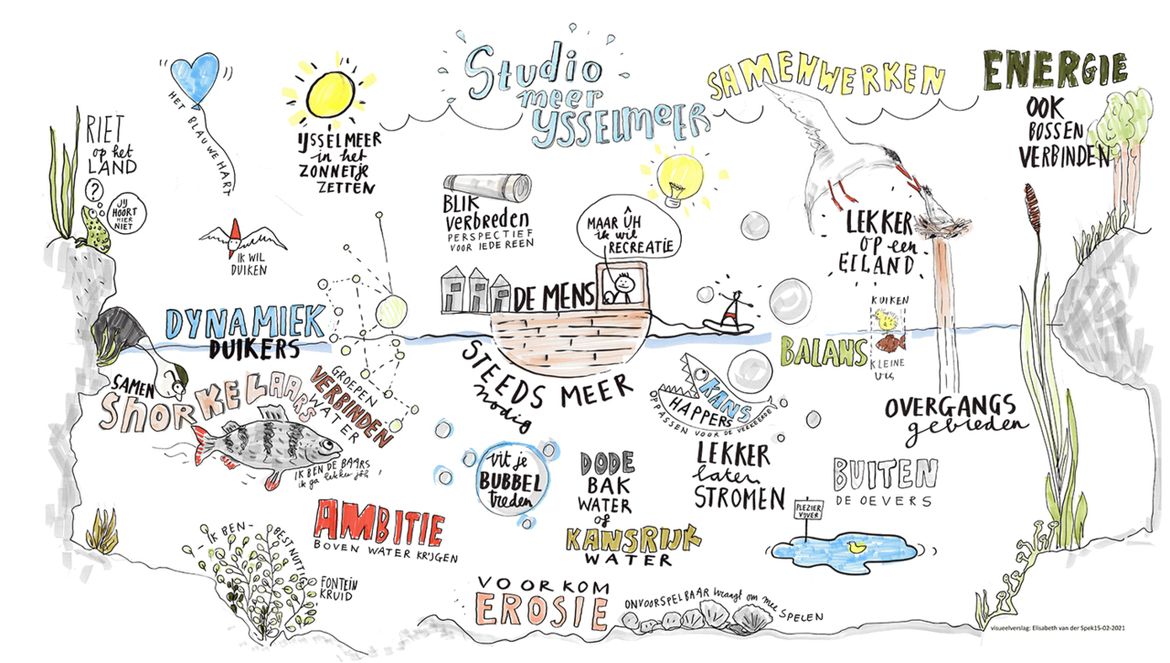 Studio
meer
YSSELMEER
SAMENWERKEN
ENERGIE
OOK
BOSSEN
VERBINDEN
HET BLAUWE HART
IJSSELMEER
in het
ZONNETJE
ZETTEN
RIET
op het
LAND
?
JIJ
HOORT
HIER
NIET
IK WIL
DUIKEN
BLIK
verbreden
PERSPECTIEF
VOOR IEDEREEN
MAAR ÛH
ik wil
RECREATIE
LEKKER
op een
EILAND
DE MENS
STEEDS MEER
nodig
DYNAMIEK
DUIKERS
SAMEN
SNORKELAARS
GROEPEN
VERBINDEN
WATER
IK BEN DE BAARS
ik ga lekker
KANS
HAPPERS
OPPASSEN VOOR DE
BALANS
KUIKEN
KLEINE
VIS
OVERGANGS
gebieden
uit je
BUBBEL
treden
DODE
BAK
WATER
of
KANSRIJK
WATER
LEKKER
laten
STROMEN
BUITEN
DE OEVERS
PLEZIER
VIJVER
AMBITIE
BOVEN WATER KRIJGEN
IK BEN BEST NUTTIG
FONTEIN
KRUID
VOORKOM
EROSIE
ONVOORSPELBAAR vraagt om mee SPELEN
visueelverslag: Elisabeth van der Spek15-02-2021